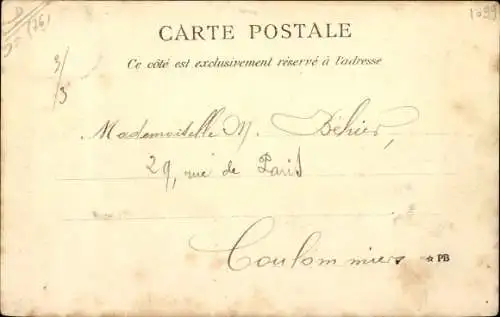 D
(76)
1099
CARTE POSTALE
Ce côté est exclusivement réservé à l'adresse
3/3
Mademoiselle M. Béhier,
29, rue de Paris
Coulommiers
☆ PB